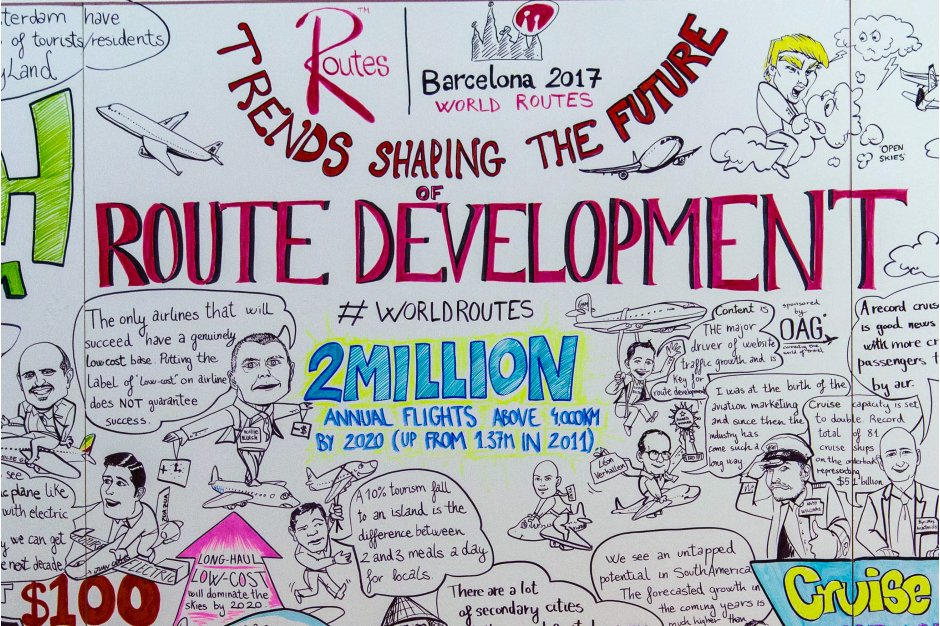 sterdam have
of tourists/residents
Land
H
Routes™
Barcelona 2017
WORLD ROUTES
TRENDS SHAPING THE FUTURE
OF
ROUTE DEVELOPMENT
#WORLDROUTES
OPEN
SKIES
The only airlines that will
succeed have a genuinely
low cost base. Putting the
Label of "low-cost" on airline
does NOT guarantee
success.
2MILLION
ANNUAL FLIGHTS ABOVE 4,000KM
BY 2020 (UP FROM 1.37M IN 2011)
Content is
THE major
driver of website
traffic growth and is
key for
route development
sponsored
by
OAG
connecting the
world of travel
A record cruise
is good news
with more cr
passengers t
by air.
I was at the birth of the
aviation marketing
and since then the
industry has
come such a
long way
Cruise capacity is set
to double. Record
total of 81
cruise ships
on the orderbook
representing
$51 billion
see
plane like
with electric
we can get
next decade
$100
LONG-HAUL
LOW-COST
will dominate the
skies by 2020
A 10% tourism fall
to an island is the
difference between
2 and 3 meals a day
for locals.
There are a lot
of secondary cities
We see an untapped
potential in South America
The forecasted growth in
the coming years is
much higher than
Cruise